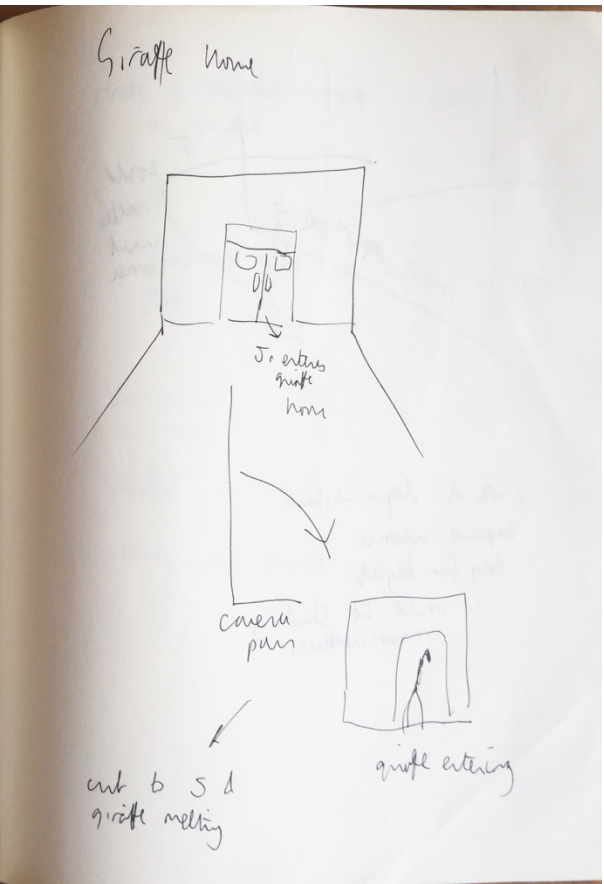 Giraffe home
J. enters
giraffe
home
camera
pans
giraffe entering
cut to 5 d
giraffe melting